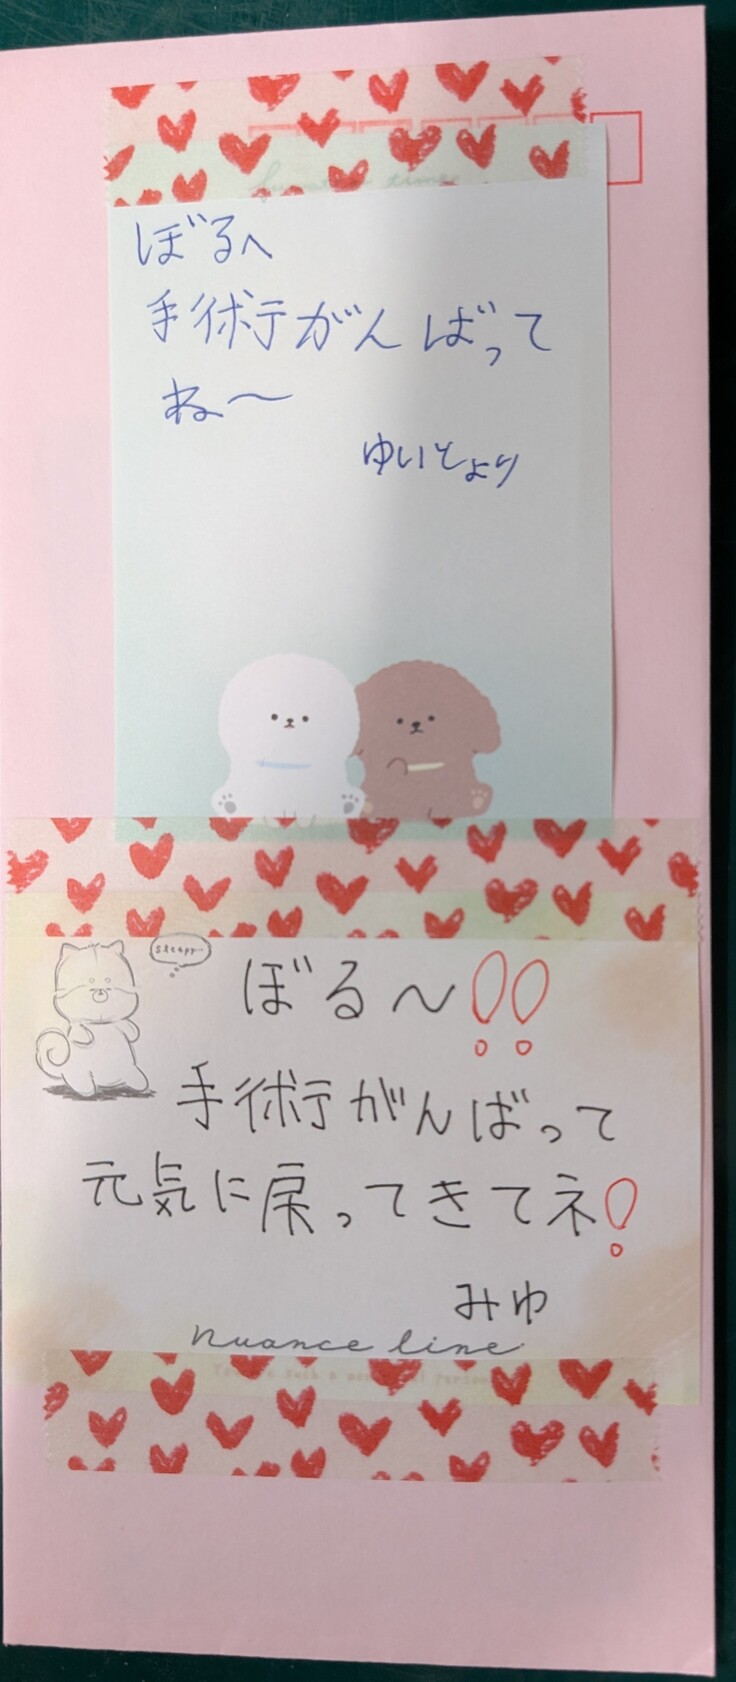 ぼるへ
手術がんばって
ね〜
ゆいとより
sleepy…
ぼる〜!!
手術がんばって
元気に戻ってきてネ!
みゆ
nuance line